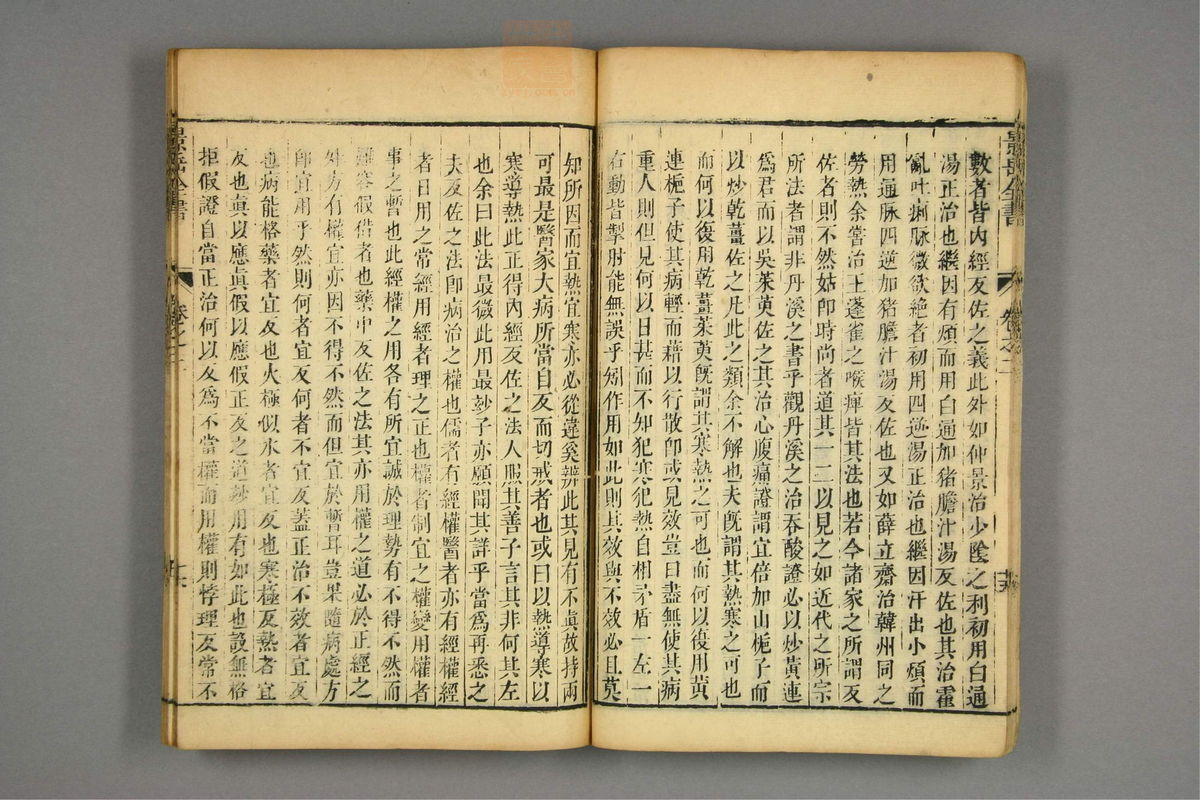 景岳全書
數者皆內經反佐之義此外如仲景治少陰之利初用白通
湯正治也繼因有煩而用白通加猪膽汁湯反佐也其治霍
亂吐痢脉微欲絕者初用四逆湯正治也繼因汗出小煩而
用通脉四逆加猪膽汁湯反佐也又如薛立齋治韓州同之
勞熱余嘗治王蓬雀之喉痺皆其法也若今諸家之所謂反
佐者則不然姑即時尚者道其一二以見之如近代之所宗
所法者謂非丹溪之書乎觀丹溪之治吞酸證必以炒黃連
爲君而以吳茱萸佐之其治心腹痛證謂宜倍加山梔子而
以炒乾薑佐之凡此之類余不解也夫旣謂其熱寒之可也
而何以復用乾薑茱萸旣謂其寒熱之可也而何以復用黃
連梔子使其病輕而藉以行散卽或見效豈曰盡無使其病
重人則但見何以日甚而不知犯寒犯熱自相矛盾一左一
右動皆掣肘能無誤乎矧作用如此則其效與不效必且莫
知所因而宜熱宜寒亦必從違奚辨此其見有不眞故持兩
可最是醫家大病所當自反而切戒者也或曰以熱導寒以
寒導熱此正得內經反佐之法人服其善子言其非何其左
也余曰此法最微此用最妙子亦願聞其詳乎當爲再悉之
夫反佐之法卽病治之權也儒者有經權醫者亦有經權經
者日用之常經用經者理之正也權者制宜之權變用權者
事之暫也此經權之用各有所宜誠於理勢有不得不然而
難容假借者也藥中反佐之法其亦用權之道必於正經之
外方有權宜亦因不得不然而但宜於暫耳豈果隨病處方
卽宜用乎然則何者宜反何者不宜反蓋正治不效者宜反
也病能格藥者宜反也火極似水者宜反也寒極反熱者宜
反也眞以應眞假以應假正反之道妙用有如此也設無格
拒假證自當正治何以反爲不當權而用權則悖理反常不
景岳全書